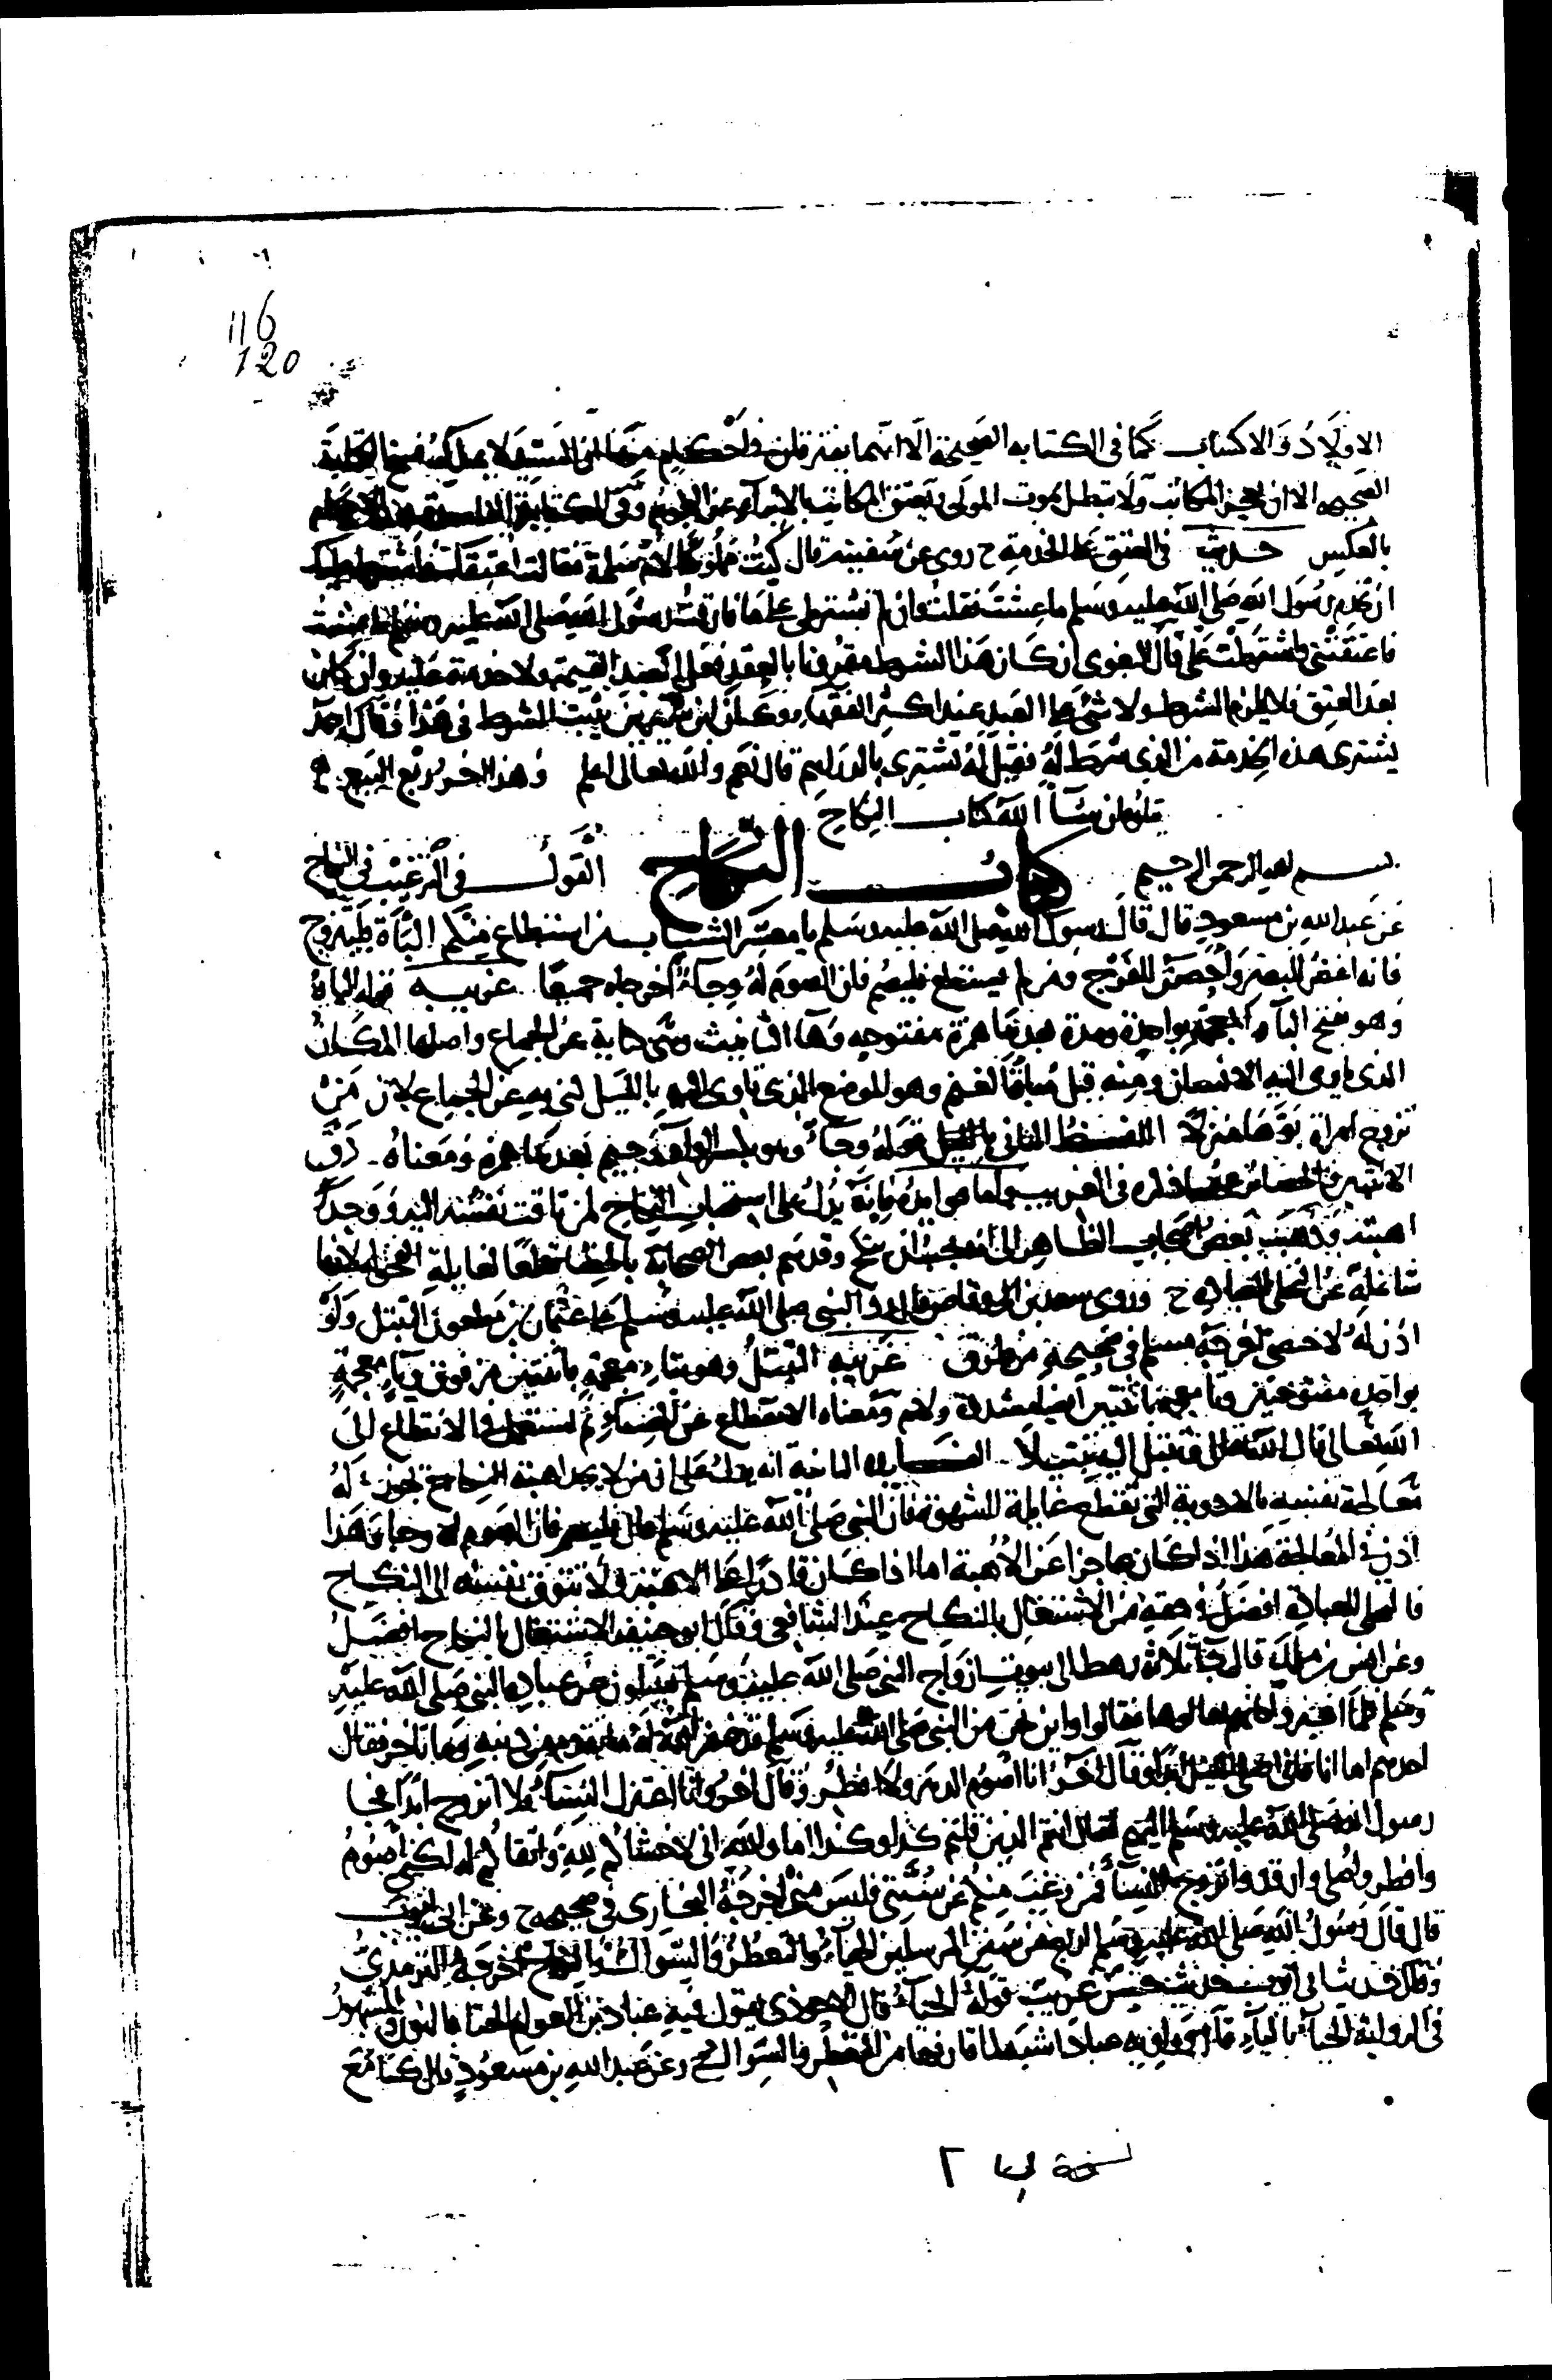 116
120
الاولاد والاكساب كما في الكتابه الصحيحة الا انهما يفترقان في احكام منها ان السيد لا يملك فسخ الكتابة
الصحيحه الا ان يعجز المكاتب ولا تبطل بموت المولى ويعتق المكاتب بالابراء عن النجوم وفي الكتابة الفاسدة
بالعكس حديث في العتق على الخدمة ح روى عن سفينة قال كنت مملوكا لام سلمة فقالت اعتقك واشترط عليك
ان تخدم رسول الله صلى الله عليه وسلم ما عشت فقلت وان لم تشترطي علي ما فارقت رسول الله صلى الله عليه وسلم ما عشت
فاعتقتني واشترطت علي قال البغوي ان كان هذا الشرط مقرونا بالعقد فعلى العبد القيمة ولا خدمة عليه وان كان
بعد العتق فلا يلزم الشرط ولا شيء على العبد عند اكثر الفقهاء وكان ابن سيرين يثبت الشرط في هذا وقال احمد
يشترى هذه الخدمة من الذي شرط له فقيل له تشترى بالدراهم قال نعم والله تعالى اعلم وهذا اخر ربع البيع
يتلوه ان شا الله كتاب النكاح
بسم الله الرحمن الرحيم كتاب النكاح القول في الترغيب في النكاح
عن عبد الله بن مسعود قال قال رسول الله صلى الله عليه وسلم يا معشر الشباب من استطاع منكم الباة فليتزوج
فانه اغض للبصر واحصن للفرج ومن لم يستطع فليصم فان الصوم له وجاء اخرجاه جميعا غريبه قوله الباة
وهو بفتح الباء المعجمة بواحدة ومدة بعدها همزة مفتوحه وهاء التانيث وهى كناية عن الجماع واصلها المكان
الذي ياوى اليه الانسان ومنه قيل مباة الغنم وهو الموضع الذي تاوى اليه بالليل كنى به عن الجماع لان من
تزوج امراة بوأها منزلا اللفظ الثاني قوله وجاء وهو بكسر الواو وجيم بعدها همزة ومعناه دق
الانثيين يدل على استحباب النكاح لمن تاقت نفسه اليه ووجد
اهبته وذهب بعض اصحاب الظاهر الى انه يجب ان ينكح وقد هم بعض الصحابة بالخصا قطعا لغايلة الفحولة لانها
شاغلة عن التخلي للعبادة ح وروى سعد بن ابي وقاص قال رد النبى صلى الله عليه وسلم على عثمان بن مظعون التبتل ولو
اذن له لاختصى اخرجه مسلم في صحيحه من طرق غريبه التبتل وهو بتاء معجمة باثنتين من فوق وباء معجمة
بواحدة مفتوحتين وتا معجمة باثنتين ايضا مشددة ولام ومعناه الانقطاع عن النساء ثم استعمل في الانقطاع الى
الله تعالى قال الله تعالى وتبتل اليه تبتيلا الفايده الثانية انه يدل على ان من لا يجد اهبة النكاح يجوز له
معالجة نفسه بالادوية التي تقطع غايلة الشهوة فان النبى صلى الله عليه وسلم قال فليصم فان الصوم له وجا وهذا
اذن في المعالجة هذا اذا كان عاجزا عن الاهبة اما اذا كان قادرا على الاهبة ولا تتوق نفسه الى النكاح
فالتخلي للعبادة افضل في حقه من الاشتغال بالنكاح عند الشافعي وقال ابو حنيفة الاشتغال بالنكاح افضل
وعن انس بن مالك قال جا ثلاثة رهط الى بيوت ازواج النبى صلى الله عليه وسلم يسالون عن عبادة النبى صلى الله عليه
وسلم فلما اخبروا كانهم تقالوها فقالوا واين نحن من النبى صلى الله عليه وسلم قد غفر الله له ما تقدم من ذنبه وما تاخر فقال
احدهم اما انا فاني اصلى الليل ابدا وقال اخر انا اصوم الدهر ولا افطر وقال اخر وانا اعتزل النساء ولا اتزوج ابدا فجا
رسول الله صلى الله عليه وسلم اليهم فقال انتم الذين قلتم كذا وكذا اما والله اني لاخشاكم لله واتقاكم له لكني اصوم
وافطر واصلى وارقد واتزوج النسا فمن رغب منكم عن سنتي فليس مني اخرجه البخاري في صحيحه ح وعن ابى ايوب
قال قال رسول الله صلى الله عليه وسلم اربع من سنن المرسلين الحياء والتعطر والسواك والنكاح اخرجه الترمذي
وقال حديث ابى ايوب حديث حسن غريب قوله الحياء قال الاحوذي يقول فيه عباد بن العوام الحنا بالنون والمشهور
في الرواية الحياء بالياء من التعطر والسواك ح وعن عبد الله بن مسعود قال كنا مع
نسخة ٢